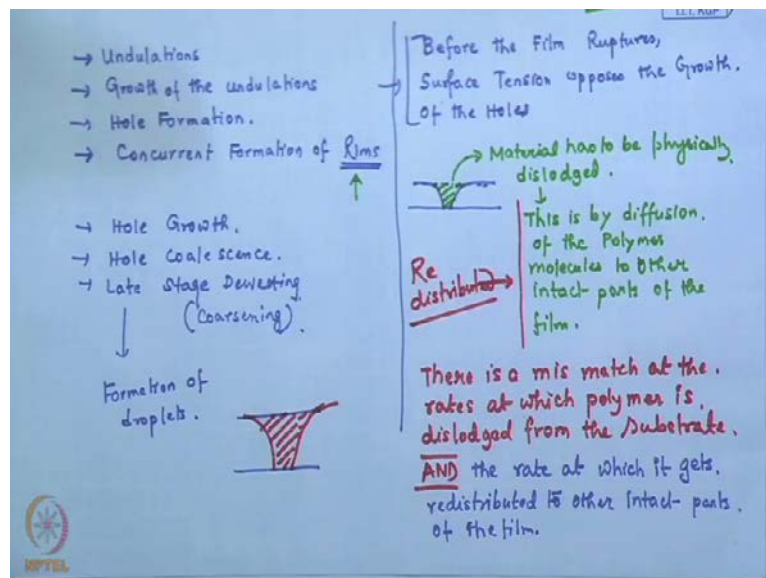 I.I.T. KGP
→ Undulations
→ Growth of the undulations
→ Hole Formation.
→ Concurrent Formation of Rims
→ Hole Growth.
→ Hole Coalescence.
→ Late Stage Dewetting
(Coarsening).
Formation of
droplets.
→ Before the Film Ruptures,
Surface Tension opposes the Growth.
Of the Holes
Material has to be physically
dislodged.
This is by diffusion.
of the Polymer
molecules to Other
intact parts of the
film.
Re
distributed
There is a mis match at the.
rates at which polymer is.
dislodged from the Substrate.
AND the rate at which it gets.
redistributed to other intact parts.
of the film.
NPTEL